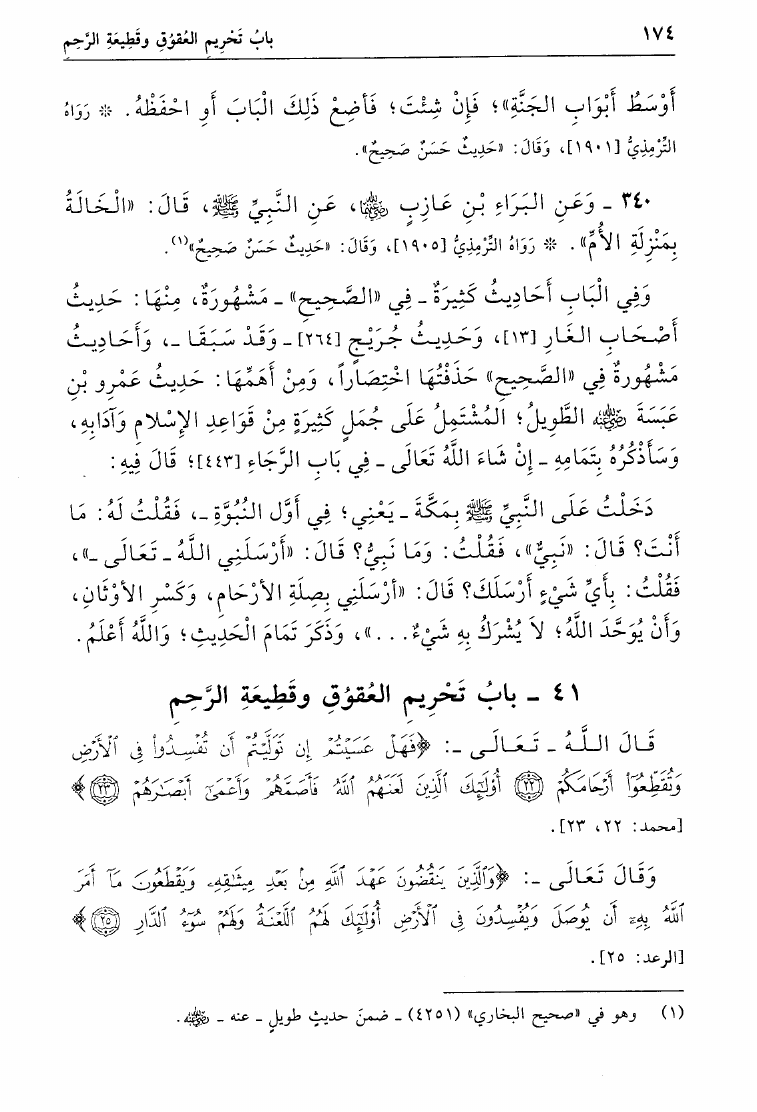 ١٧٤ بابُ تَحْرِيمِ العُقوُقِ وقَطِيعَةِ الرَّحِمِ
أَوْسَطُ أَبْوَابِ الجَنَّةِ»؛ فَإِنْ شِئْتَ؛ فَأَضِعْ ذَلِكَ الْبَابَ أَوِ احْفَظْهُ. * رَوَاهُ
التِّرْمِذِيُّ [١٩٠١]، وَقَالَ: «حَدِيثٌ حَسَنٌ صَحِيحٌ».
٣٤٠ ـ وَعَنِ البَرَاءِ بْنِ عَازِبٍ رضي الله عنهما، عَنِ النَّبِيِّ ﷺ، قَالَ: «الْخَالَةُ
بِمَنْزِلَةِ الأُمِّ». * رَوَاهُ التِّرْمِذِيُّ [١٩٠٥]، وَقَالَ: «حَدِيثٌ حَسَنٌ صَحِيحٌ»(١).
وَفِي الْبَابِ أَحَادِيثُ كَثِيرَةٌ ـ فِي «الصَّحِيحِ» ـ مَشْهُورَةٌ، مِنْهَا: حَدِيثُ
أَصْحَابِ الغَارِ [١٣]، وَحَدِيثُ جُرَيْجٍ [٢٦٤] ـ وَقَدْ سَبَقَا ـ، وَأَحَادِيثُ
مَشْهُورةٌ فِي «الصَّحِيحِ» حَذَفْتُهَا اخْتِصَاراً، وَمِنْ أَهَمِّهَا: حَدِيثُ عَمْرِو بْنِ
عَبَسَةَ رضي الله عنه الطَّوِيلُ؛ المُشْتَمِلُ عَلَى جُمَلٍ كَثِيرَةٍ مِنْ قَوَاعِدِ الإِسْلامِ وَآدَابِهِ،
وَسَأَذْكُرُهُ بِتَمَامِهِ ـ إِنْ شَاءَ اللَّهُ تَعَالَى ـ فِي بَابِ الرَّجَاءِ [٤٤٣]؛ قَالَ فِيهِ:
دَخَلْتُ عَلَى النَّبِيِّ ﷺ بِمَكَّةَ ـ يَعْنِي؛ فِي أَوَّلِ النُّبُوَّةِ ـ، فَقُلْتُ لَهُ: مَا
أَنْتَ؟ قَالَ: «نَبِيٌّ»، فَقُلْتُ: وَمَا نَبِيٌّ؟ قَالَ: «أَرْسَلَنِي اللَّهُ ـ تَعَالَى ـ»،
فَقُلْتُ: بِأَيِّ شَيْءٍ أَرْسَلَكَ؟ قَالَ: «أَرْسَلَنِي بِصِلَةِ الأَرْحَامِ، وَكَسْرِ الأَوْثَانِ،
وَأَنْ يُوَحَّدَ اللَّهُ؛ لاَ يُشْرَكُ بِهِ شَيْءٌ...»، وَذَكَرَ تَمَامَ الْحَدِيثِ؛ وَاللَّهُ أَعْلَمُ.
٤١ ـ بابُ تَحْرِيمِ العُقوُقِ وقَطِيعَةِ الرَّحِمِ
قَالَ اللَّهُ ـ تَعَالَى ـ: ﴿فَهَلْ عَسَيْتُمْ إِن تَوَلَّيْتُمْ أَن تُفْسِدُوا۟ فِى ٱلْأَرْضِ
وَتُقَطِّعُوٓا۟ أَرْحَامَكُمْ ﴿٢٢﴾ أُو۟لَٰٓئِكَ ٱلَّذِينَ لَعَنَهُمُ ٱللَّهُ فَأَصَمَّهُمْ وَأَعْمَىٰٓ أَبْصَٰرَهُمْ ﴿٢٣﴾﴾
[محمد: ٢٢، ٢٣].
وَقَالَ تَعَالَى ـ: ﴿وَٱلَّذِينَ يَنقُضُونَ عَهْدَ ٱللَّهِ مِنۢ بَعْدِ مِيثَٰقِهِۦ وَيَقْطَعُونَ مَآ أَمَرَ
ٱللَّهُ بِهِۦٓ أَن يُوصَلَ وَيُفْسِدُونَ فِى ٱلْأَرْضِ أُو۟لَٰٓئِكَ لَهُمُ ٱللَّعْنَةُ وَلَهُمْ سُوٓءُ ٱلدَّارِ ﴿٢٥﴾﴾
[الرعد: ٢٥].
(١) وهو في «صحيح البخاري» (٤٢٥١) ـ ضمنَ حديثٍ طويلٍ ـ عنه ـ رضي الله عنه.